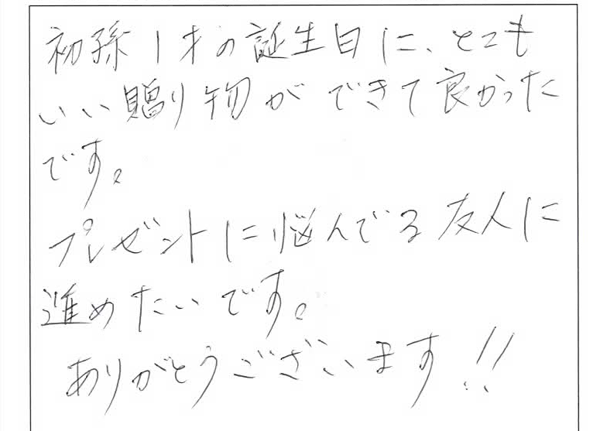 初孫1才の誕生日に、とても
いい贈り物ができて良かった
です。
プレゼントに悩んでる友人に
進めたいです。
ありがとうございます!!